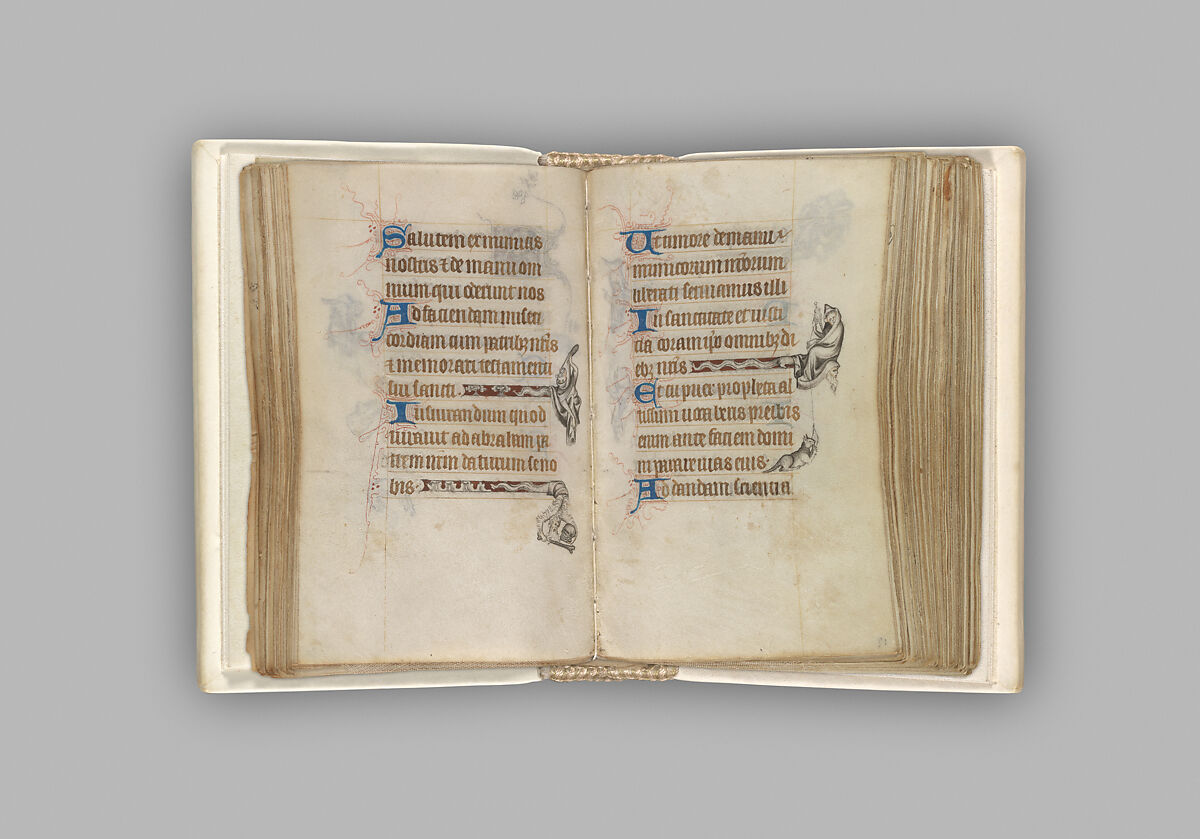 Salutem ex inimicis
nostris ⁊ de manu om
nium qui oderunt nos
Ad faciendam miseri
cordiam cum patribꝫ nr̃is
⁊ memorari testamenti
sui sancti
Iusiurandum quod
iurauit ad abraham pa
trem nr̃m daturum se no
bis
Ut timore de manu i
nimicorum nr̃orum
liberati seruiamus illi
In sanctitate et iusti
cia coram ip̃o omnibꝫ di
ebꝫ nr̃is
Et tu puer propheta al
tissimi uocaberis preibis
enim ante faciem domi
ni parare uias eius
Ad dandam scientia